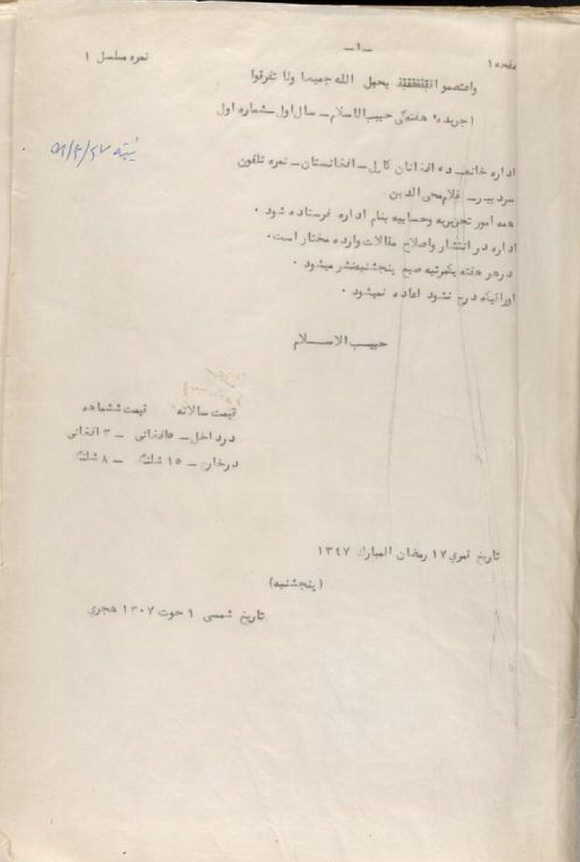 -۱-
صفحه ۱
نمره مسلسل ۱
واعتصموا بحبل الله جمیعا ولا تفرقوا
جریده هفتگی حبیب‌الاسلام - سال اول - شماره اول
اداره خانه ده افغانان کابل - افغانستان - نمره تلفون
سردبیر - غلام محی الدین
همه امور تحریریه وحسابیه بنام اداره فرستاده شود .
اداره در انتشار واصلاح مقالات وارده مختار است.
در هر هفته یکمرتبه صبح پنجشنبه نشر میشود .
اوراقیکه درج نشود اعاده نمیشود .
حبیب الاسلام
قیمت سالانه قیمت ششماهه
در داخل - ۵ افغانی - ۳ افغانی
در خارج - ۱۵ شلنگ - ۸ شلنگ
تاریخ قمری ۱۷ رمضان المبارک ۱۳۴۷
(پنجشنبه)
تاریخ شمسی ۱ حوت ۱۳۰۷ هجری